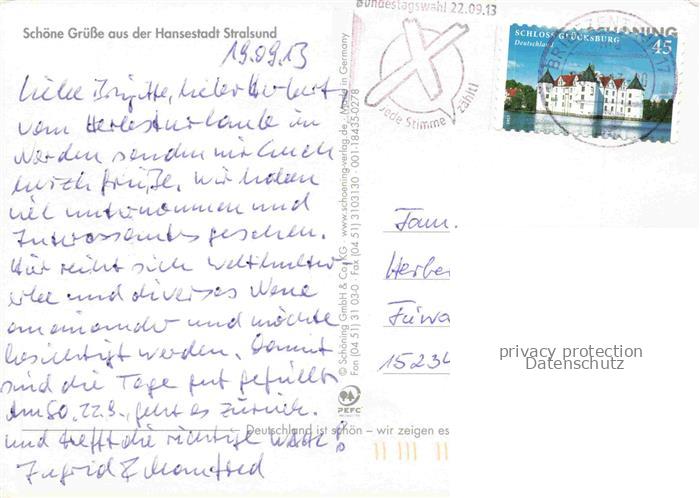 Schöne Grüße aus der Hansestadt Stralsund
19.09.13
Liebe Brigitte, lieber Herbert
vom Herbsturlaub im
Norden senden wir Euch
herzl. Grüße. Wir haben
viel unternommen und
Interessantes gesehen.
Hier reiht sich Weltkultur
erbe und diverses Neue
aneinander und möchte
besichtigt werden. Damit
sind die Tage gut gefüllt.
Am SO. 22.9. geht es zurück.
und trefft die richtige Wahl!
Ingrid & Manfred
© Schöning GmbH & Co. KG · www.schoening-verlag.de · Made in Germany
Fon (04 51) 31 03-0 · Fax (04 51) 3103130 · 001-18435-0278
PEFC
Deutschland ist schön – wir zeigen es
Bundestagswahl 22.09.13
Jede Stimme zählt!
SCHLOSS GLÜCKSBURG
Deutschland
45
BRIEFZENTRUM 17
Fam.
Herber
Fürwa
15234
privacy protection
Datenschutz